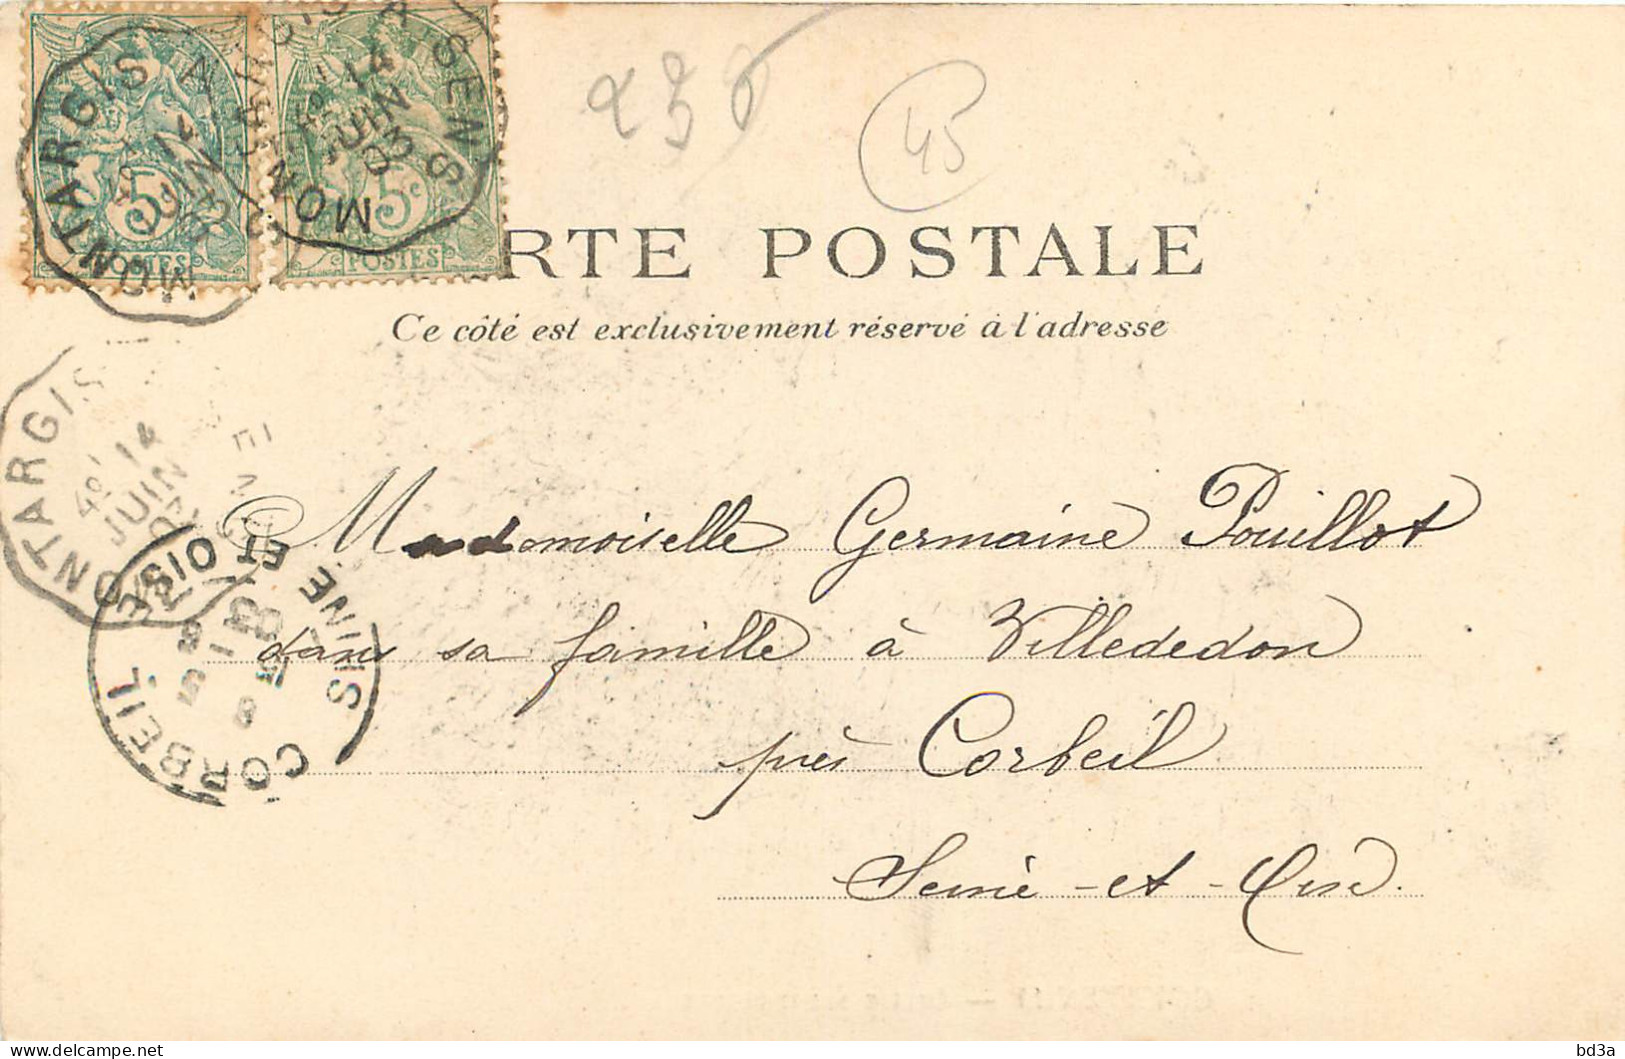 MONTARGIS A
14
JUIN
5
POSTES
MONTARGIS A SENS
14
JUIN
03
5c
POSTES
236
45
RTE POSTALE
Ce côté est exclusivement réservé à l'adresse
MONTARGIS
14
JUIN
Mademoiselle Germaine Pouillot
dans sa famille à Villededon
près Corbeil
Seine-et-Oise.
CORBEIL
SEINE ET OISE
bd3a